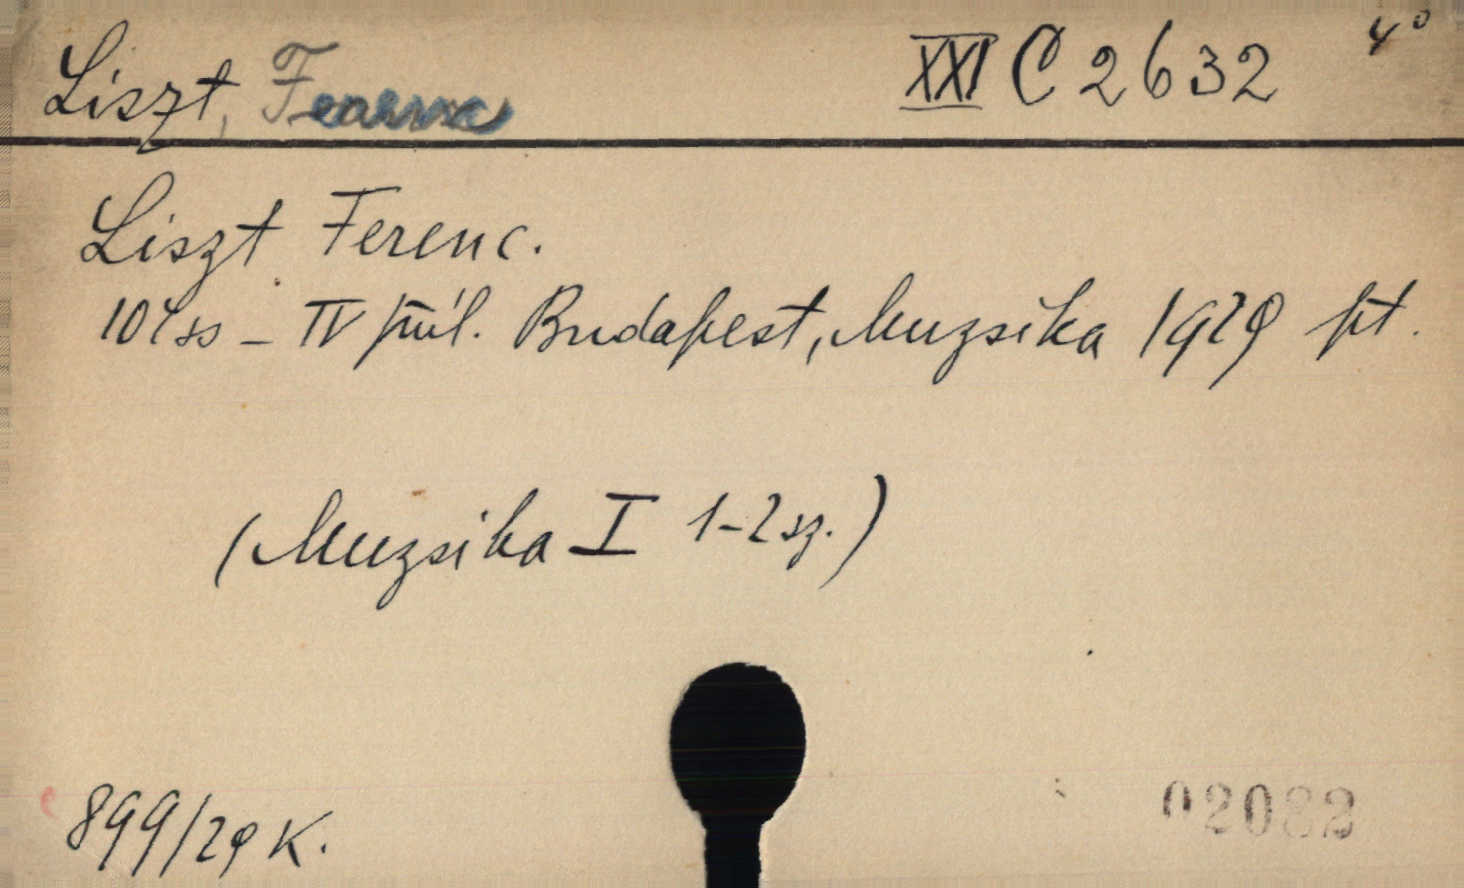 Liszt, XXI C 2632 4°
Liszt Ferenc.
104 ss – IV mûl. Budapest, Muzsika 1929 pt.
(Muzsika I 1-2 sz.)
899/29 K.
02082